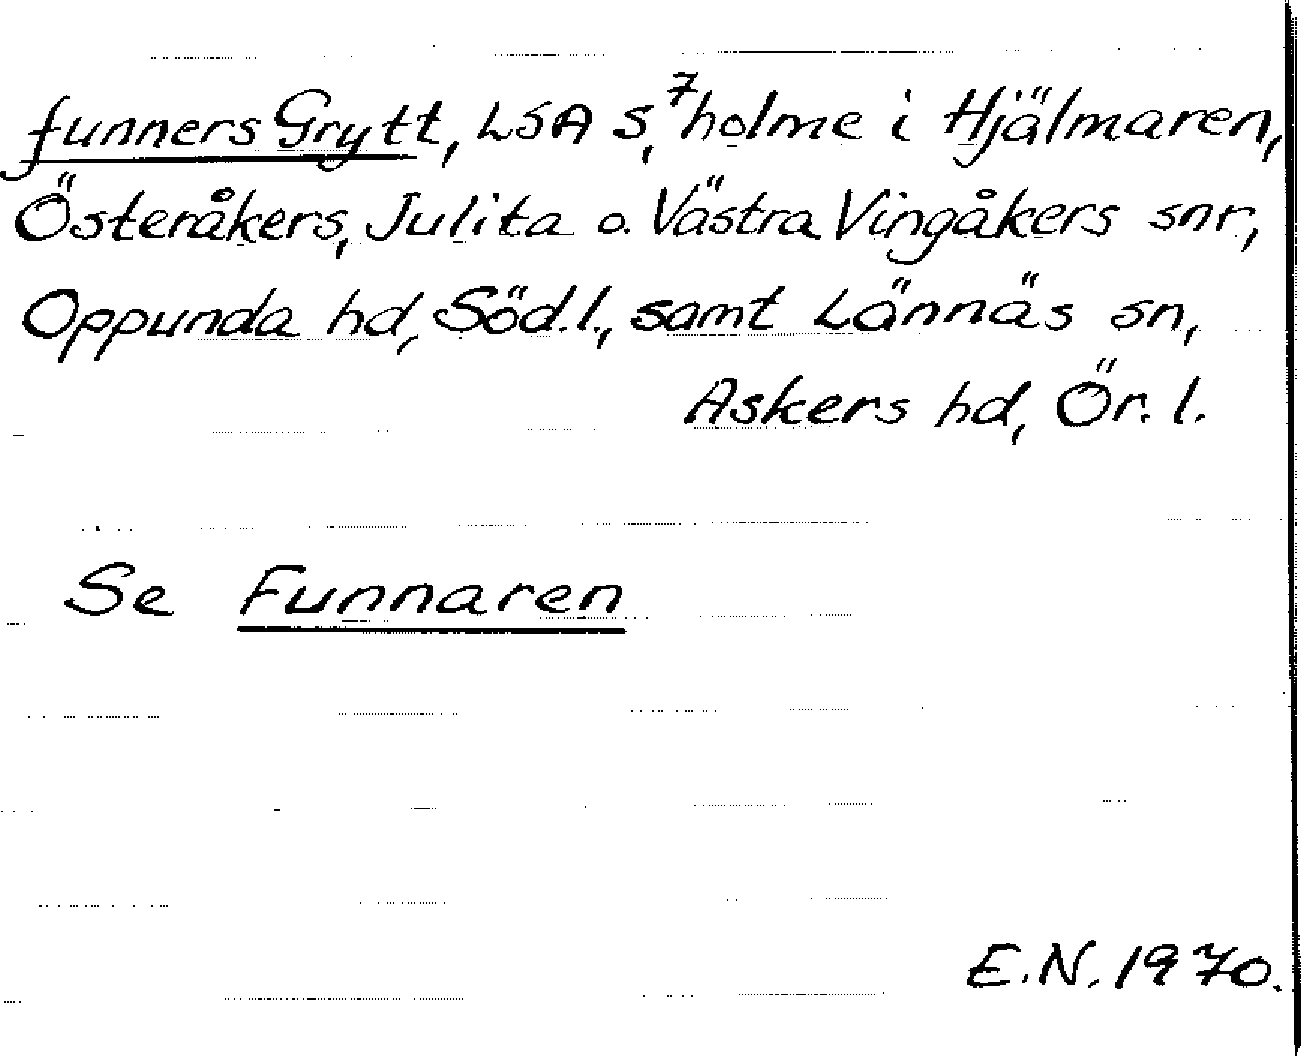 funners Grytt, LSA S, ⁷holme i Hjälmaren,
Österåkers, Julita o. Västra Vingåkers snr,
Oppunda hd, Söd.l., samt Lännäs sn,
Askers hd, Ör. l.
Se Funnaren
E.N. 1970.